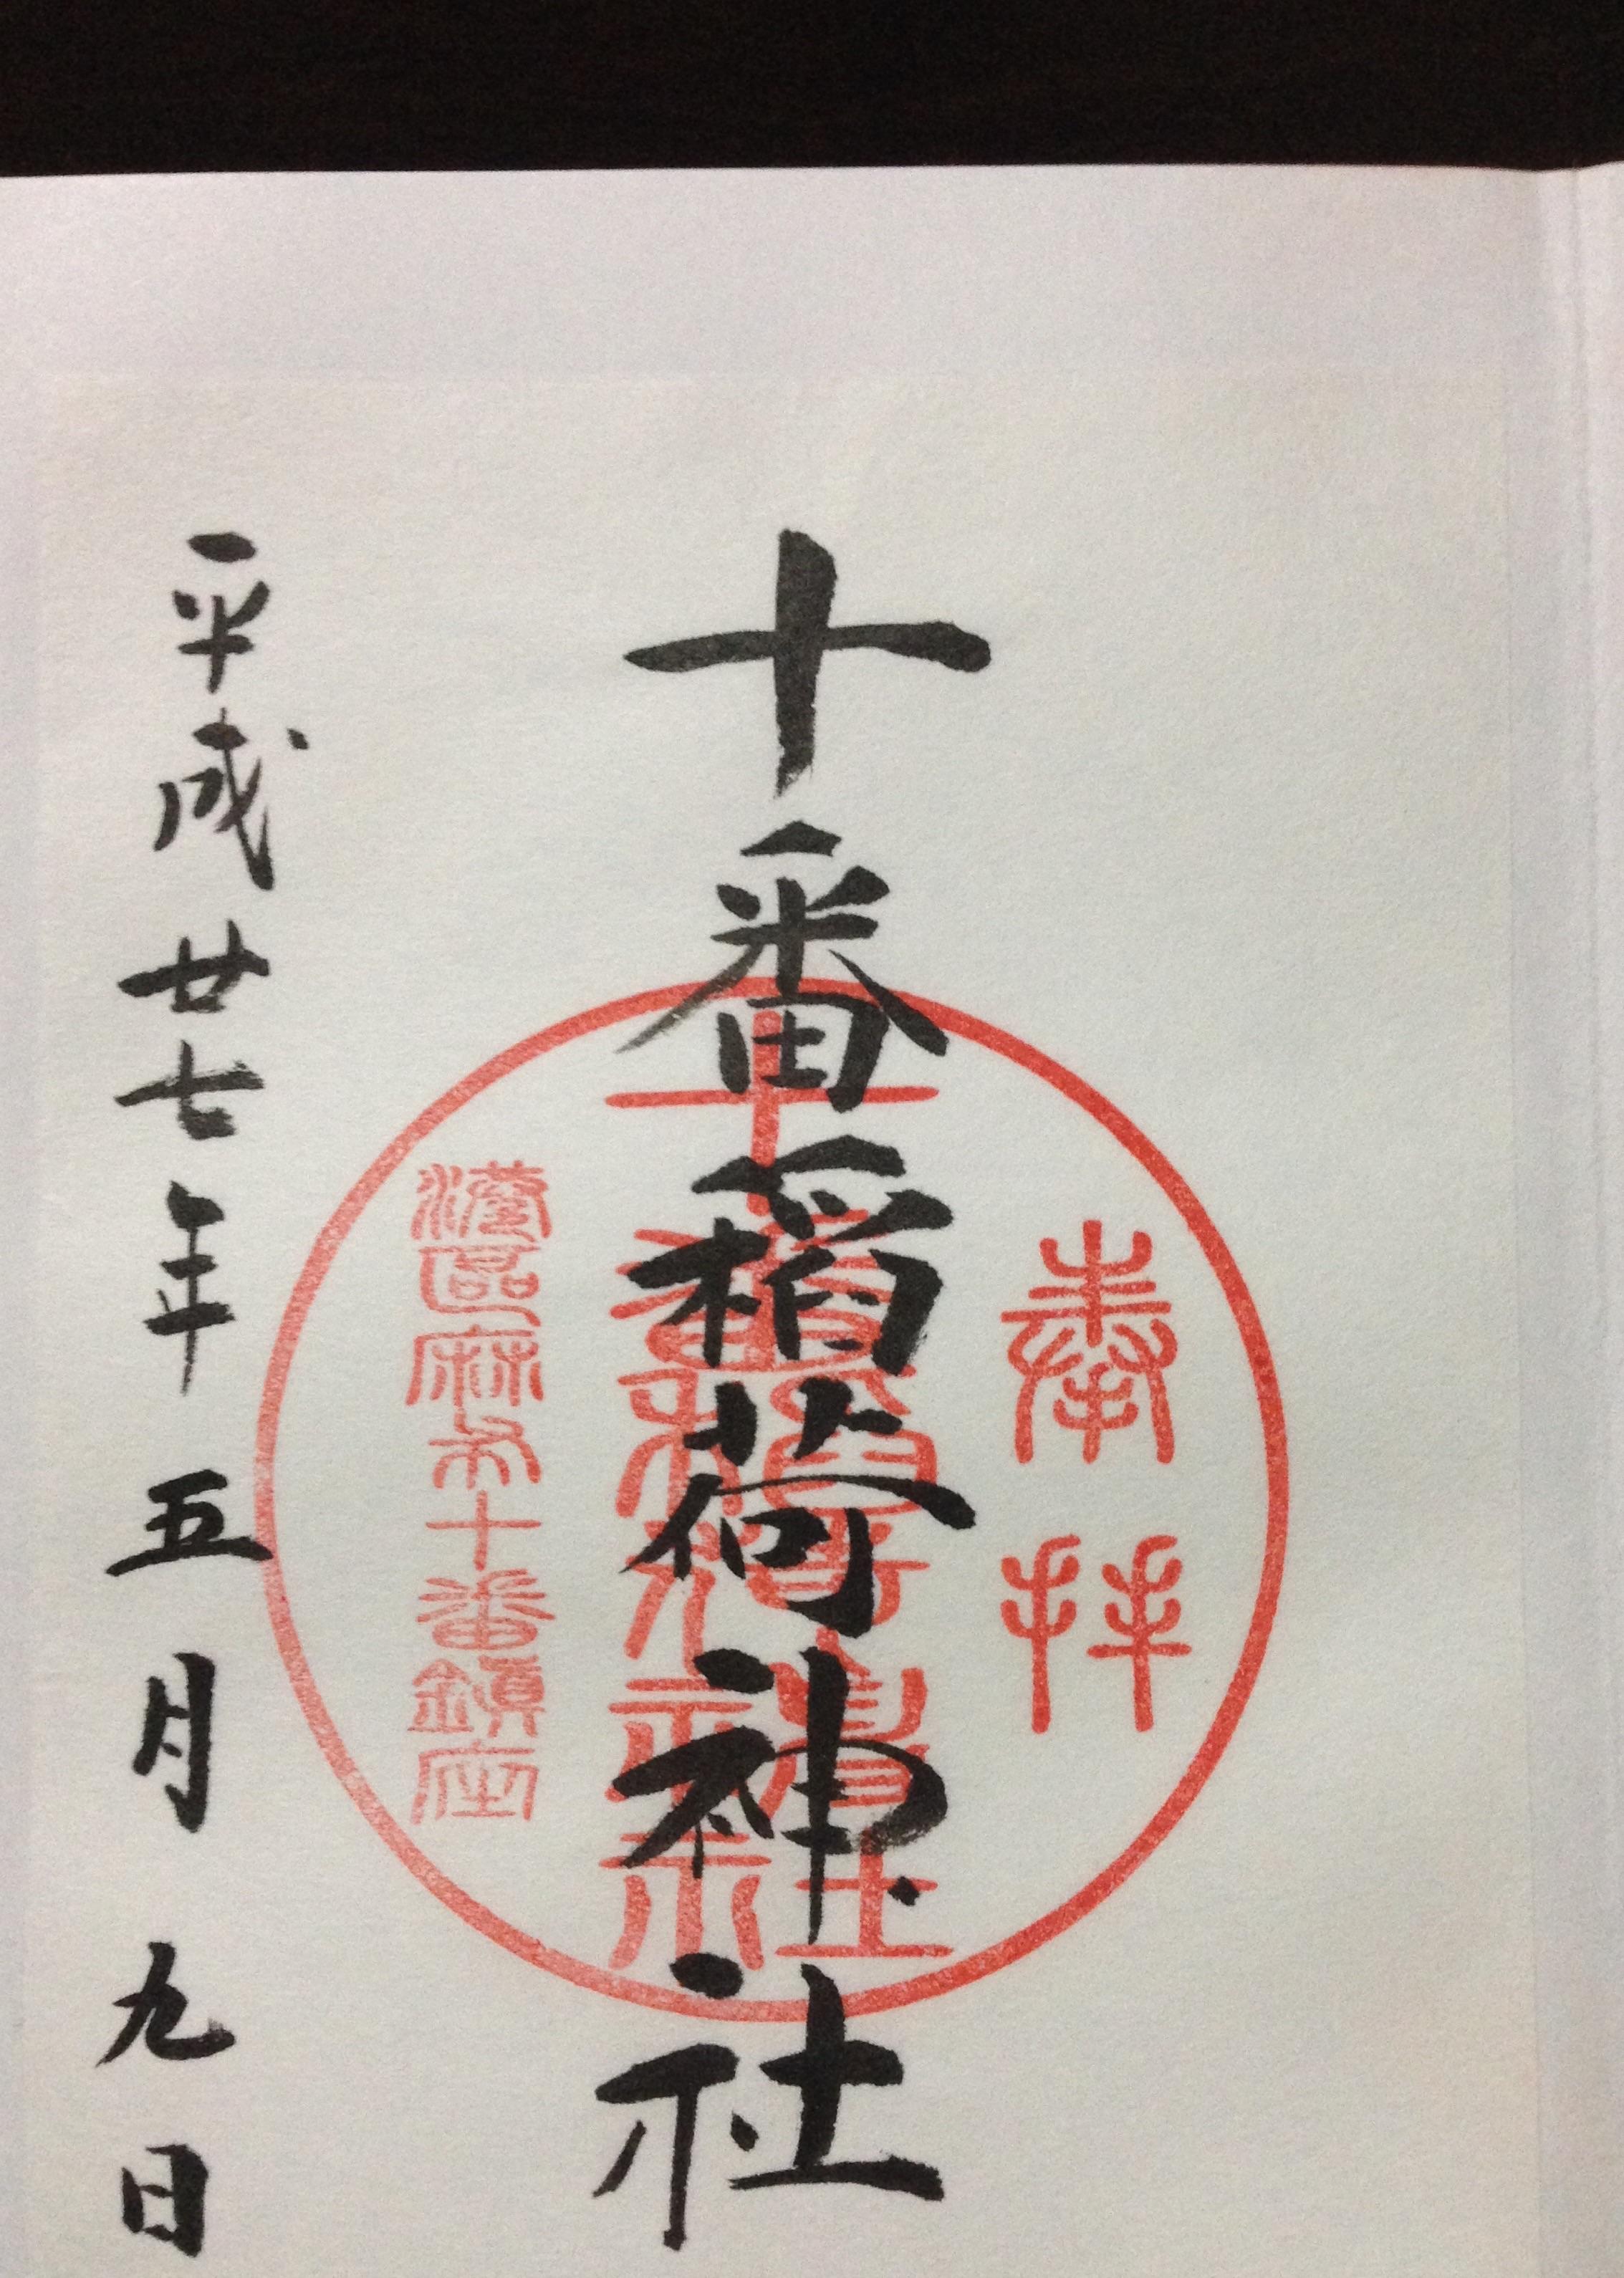 奉拝
十番稲荷神社
十番稲荷神社
港區麻布十番鎮座
平成廿七年五月九日